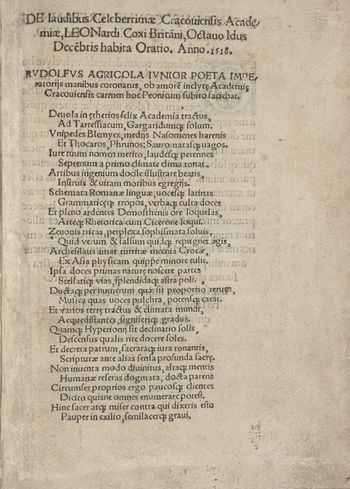 DE laudibus Celeberrimæ Cracouiensis Acade/
miæ, LEONardi Coxi Britãni, Octauo Idus
Decẽbris habita Oratio. Anno. 1518.
RVDOLFVS AGRICOLA IVNIOR POETA IMPE
ratorijs manibus coronatus, ob amorẽ inclytę Academię
Cracouiensis carmen hoc Peonicum subito faciebat.
Deuola in ętherios felix Academia tractus,
Ad Tartessiacum, Gargaridumqꝫ solum.
Vnipedes Blemyes, medijs Nasomenes harenis
Et Thocaros, Phrunos; Sauro natasqꝫ uagos.
Iure tuum nomen merito, laudesqꝫ perennes
Septenum a primo climate clima sonat.
Artibus ingenium docile illustrare beatis,
Instruis & uitam moribus egregijs.
Schemata Romanæ linguæ, uocesqꝫ latinas
Grammaticęqꝫ tropos, verbaqꝫ culta doces
Et pleno ardentes Demosthenis ore loquelas,
Arteqꝫ Rhetorica cum Cicerone loqui.
Zenonis tricas, perplexa sophismata soluis,
Quid verum & falsum quidqꝫ repugnet agis,
Archesilaus amat turritæ mœnia Cręcæ,
Ex Asia physicam quippe minore tulit.
Ipsa doces primas naturę noscere partes
Stellasqꝫ uias, splendidaqꝫ astra poli.
Ductaqꝫ per numerum quæ sit proportio rerum,
Musica quas uoces pulchra, potensqꝫ carat.
Et varios terrę tractus & climata mundi,
Aequedistantes, signiferiqꝫ gradus.
Quamqꝫ Hyperionijs sit declinatio solis,
Descensus qualis rite docere soles.
Et decreta patrum, sacrataqꝫ iura tonantis,
Scripturæ ante alias sensa profunda sacrę.
Non inuenta modo diuinitus, altaqꝫ mentis
Humanæ reseras dogmata, docta parens
Circumfer proprios ergo paucosqꝫ clientes
Dicito quisne omnes enumerare potest.
Hinc facer atqꝫ miser contra qui dixeris esto
Pauper in exilio, semilacerqꝫ graui,